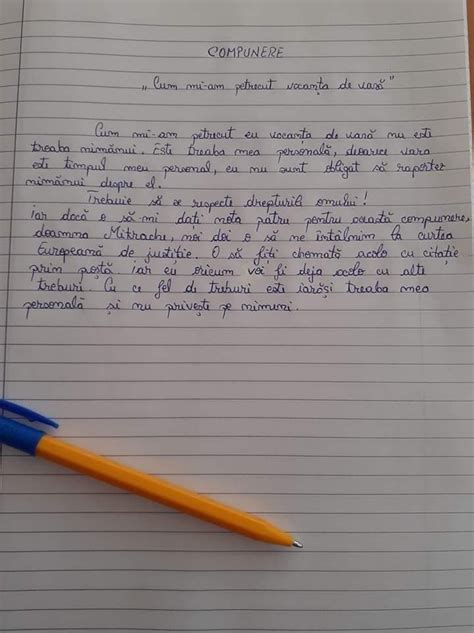 COMPUNERE
„Cum mi-am petrecut vacanța de vară"
Cum mi-am petrecut eu vacanța de vară nu este
treaba nimănui. Este treaba mea personală, deoarece vara
este timpul meu personal, eu nu sunt obligat să raportez
nimănui despre el.
Trebuie să se respecte drepturile omului!
Iar dacă o să-mi dați nota patru pentru această compunere,
doamna Mitrache, noi doi o să ne întâlnim la curtea
Europeană de justiție. O să fiți chemată acolo cu citație
prin poștă iar eu oricum voi fi deja acolo cu alte
treburi. Cu ce fel de treburi este iarăși treaba mea
personală și nu privește pe nimeni.